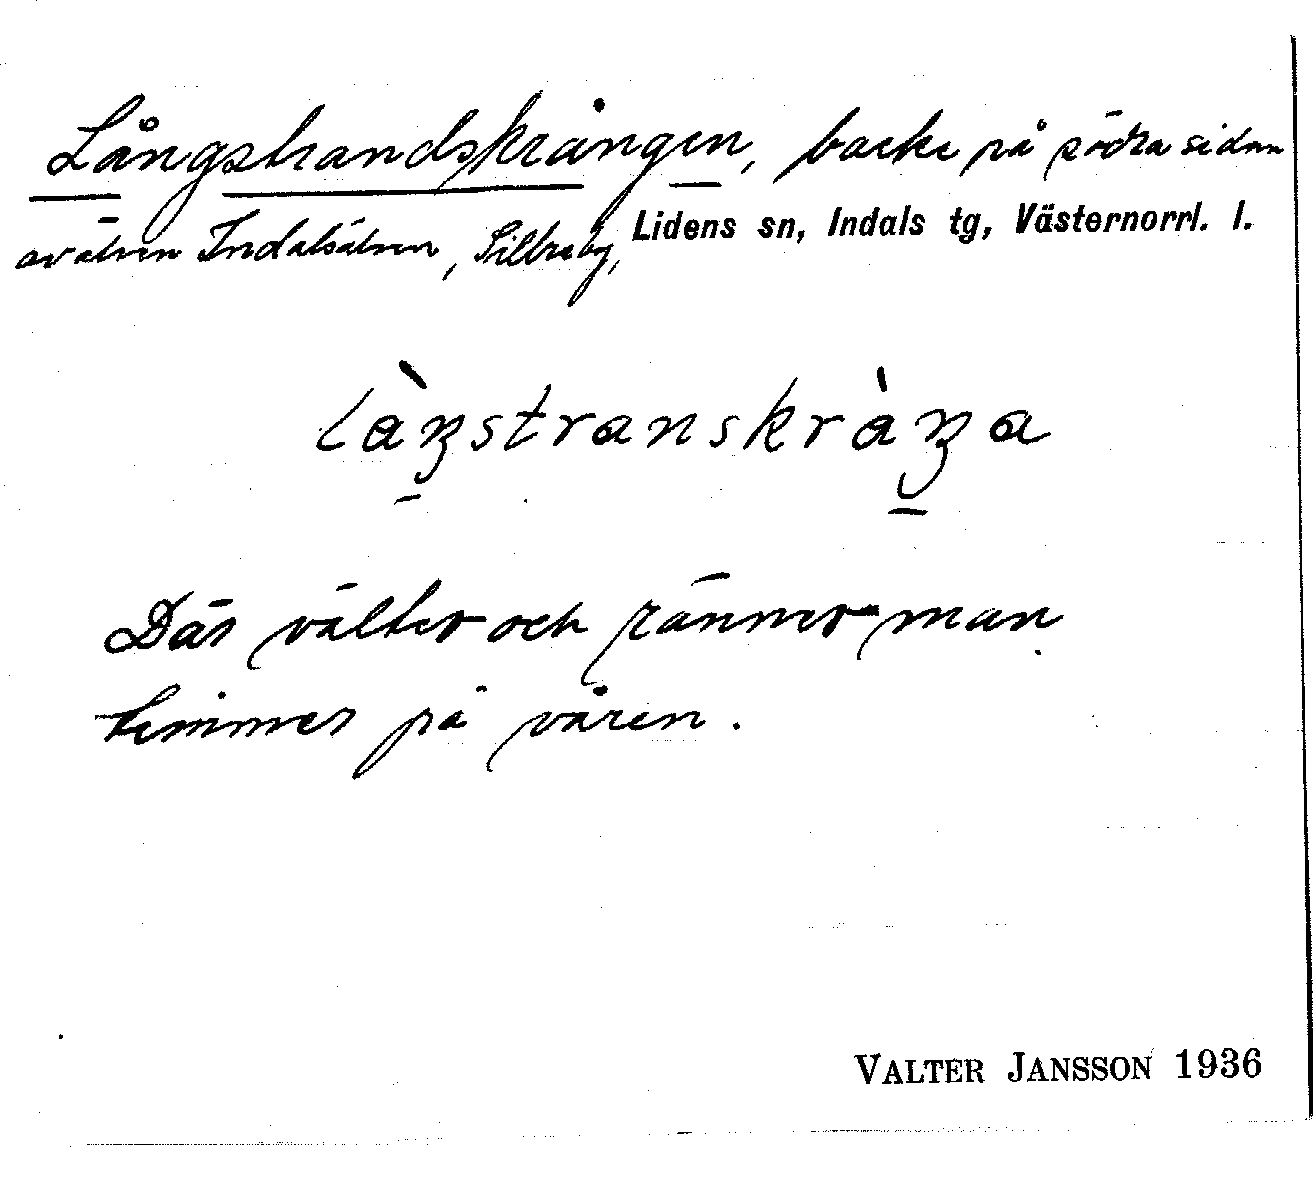 Långstrandskrången, backe på södra sidan
av älven Indalsälven, Sillre by, Lidens sn, Indals tg, Västernorrl. l.
làŋstranskràŋa
Där välter och ränner man
timmer på våren.
VALTER JANSSON 1936